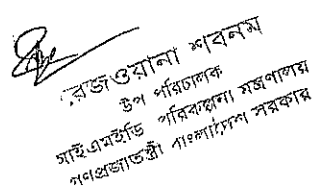 রেজওয়ানা শবনম
উপ পরিচালক
আইএমইডি পরিকল্পনা মন্ত্রণালয়
গণপ্রজাতন্ত্রী বাংলাদেশ সরকার